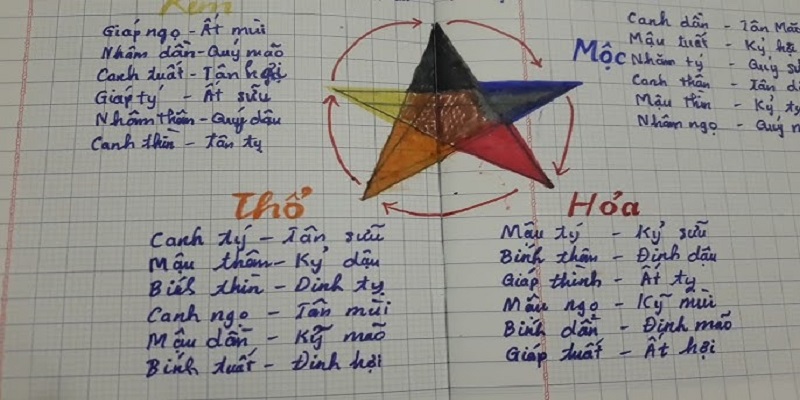 Kim
Giáp ngọ - Ất mùi
Nhâm dần - Quý mão
Canh tuất - Tân hợi
Giáp tý - Ất sửu
Nhâm thân - Quý dậu
Canh thìn - Tân tỵ
Mộc
Canh dần - Tân Mão
Mậu tuất - Kỷ hợi
Nhâm tý - Quý sử
Canh thân - Tân d
Mậu thìn - Kỷ tỵ
Nhâm ngọ - Quý m
Thổ
Canh tý - Tân sửu
Mậu thân - Kỷ dậu
Bính thìn - Đinh tỵ
Canh ngọ - Tân mùi
Mậu dần - Kỹ mão
Bính tuất - Đinh hợi
Hỏa
Mậu tý - Kỷ sửu
Bính thân - Đinh dậu
Giáp thình - Ất tỵ
Mậu ngọ - Kỹ mùi
Bính dần - Định mão
Giáp tuất - Ất hợi